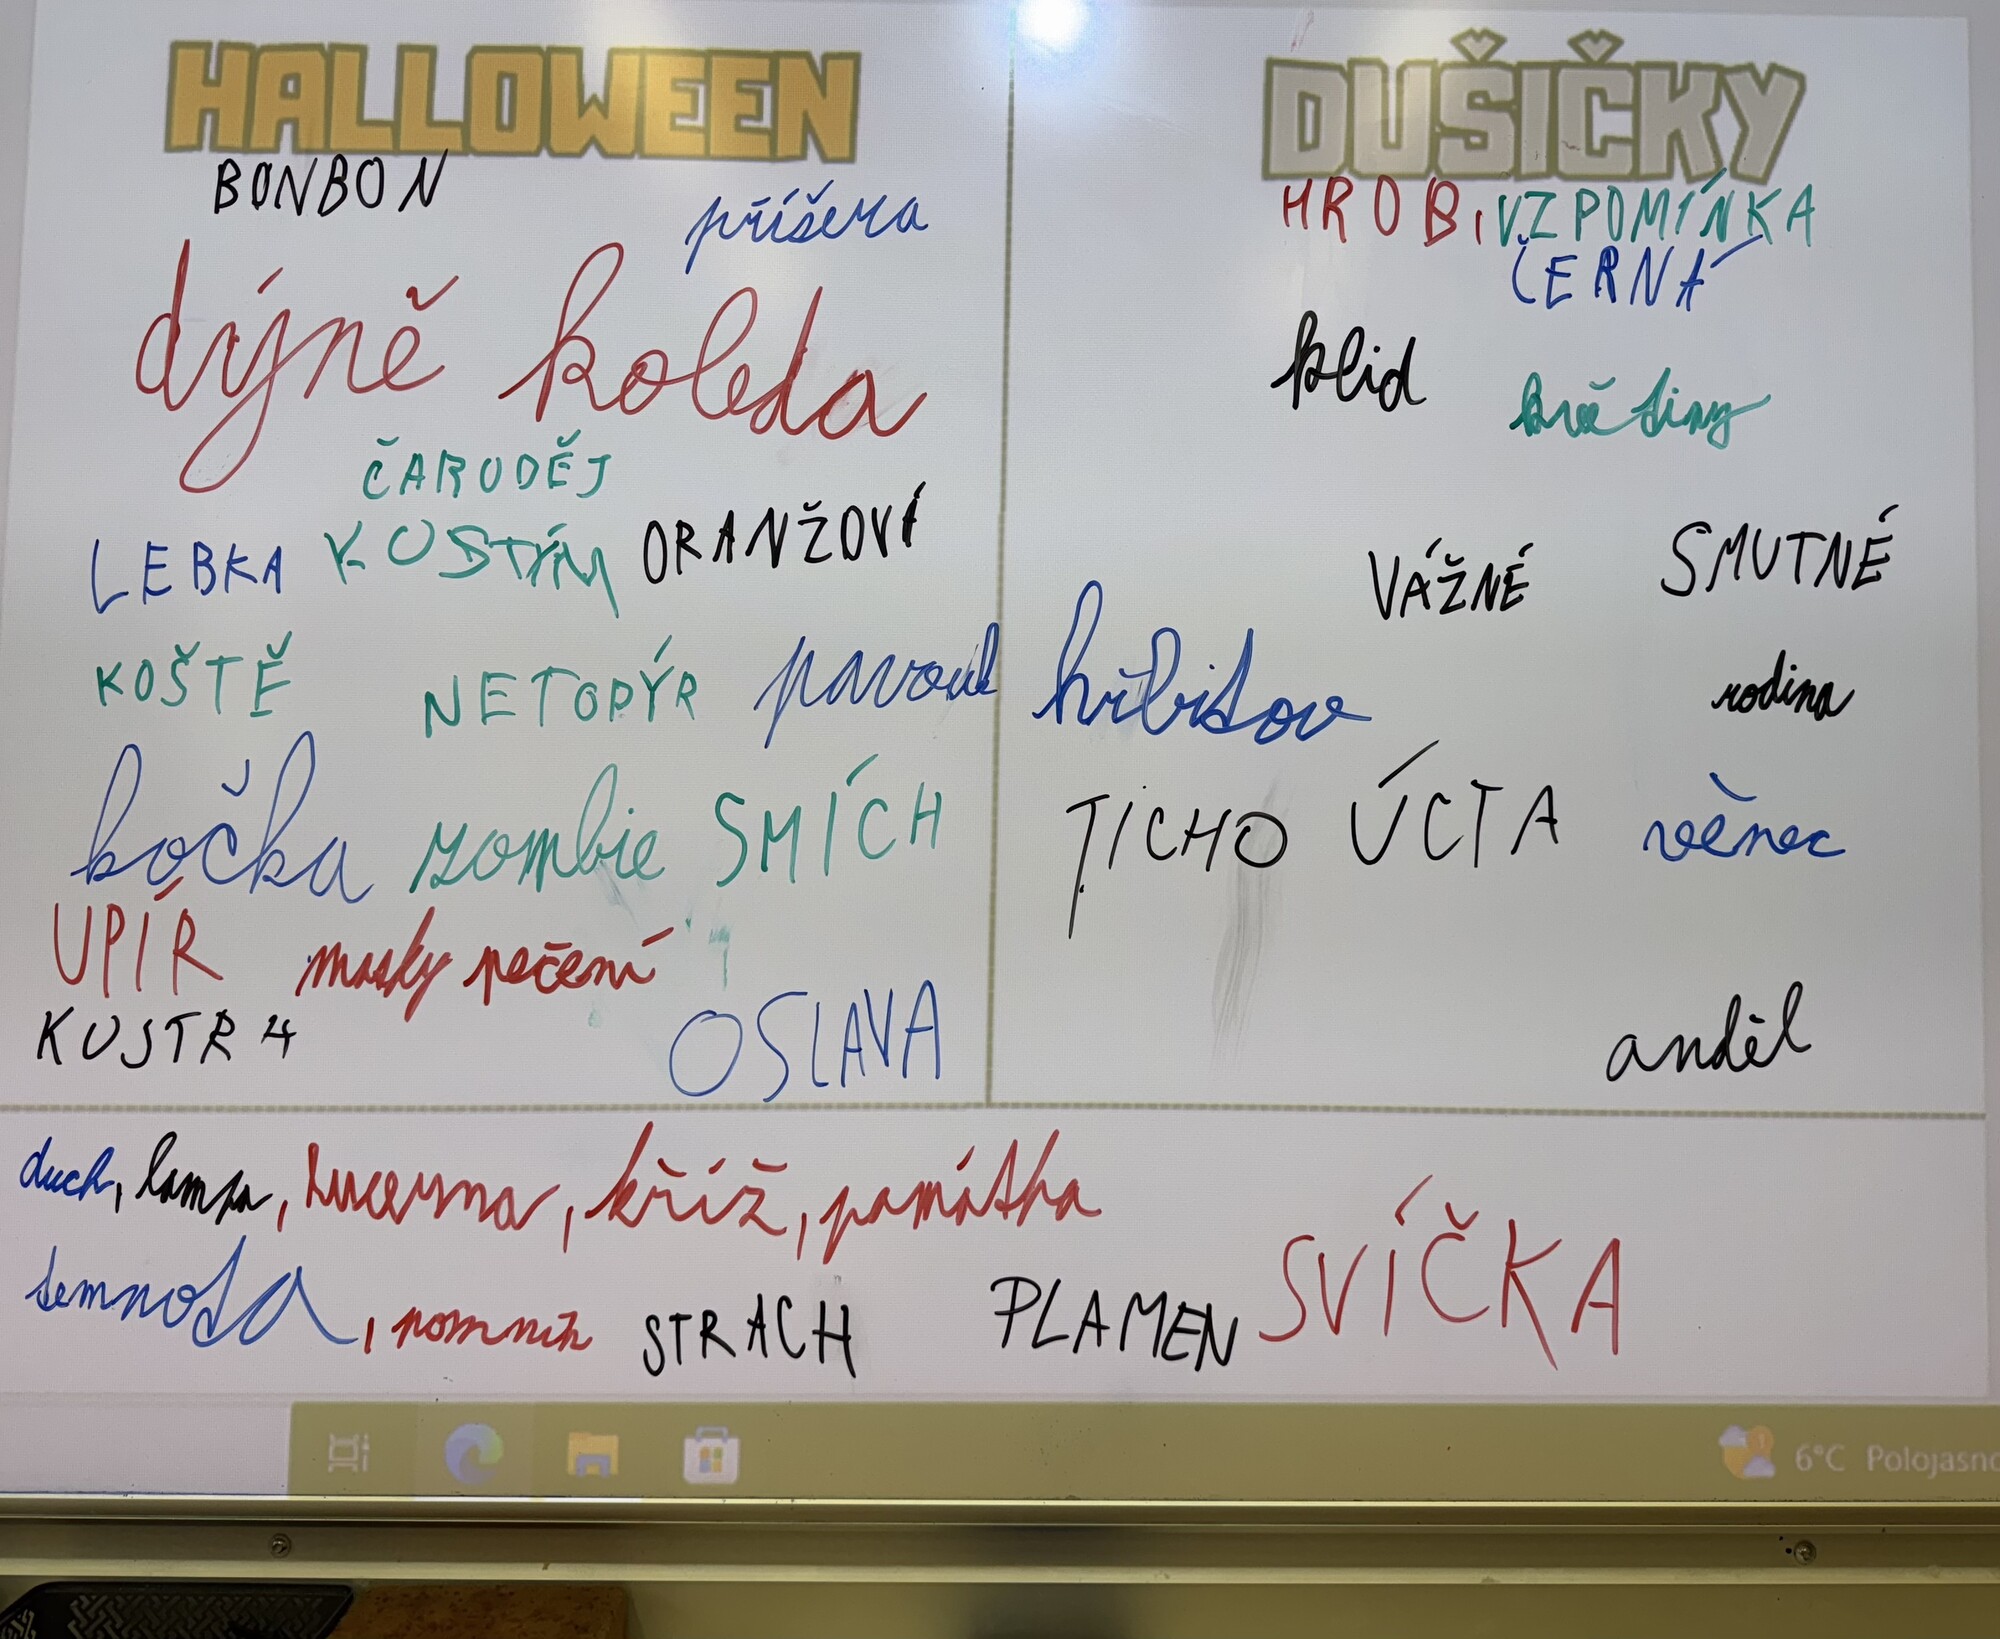 HALLOWEEN
BONBON příšera
dýně koleda
ČARODĚJ
LEBKA KOSTÝM ORANŽOVÁ
KOŠTĚ NETOPÝR pavouk
kočka zombie SMÍCH
UPÍR masky pečení
KOSTRA OSLAVA
DUŠIČKY
HROB, VZPOMÍNKA
ČERNÁ
klid květiny
VÁŽNÉ SMUTNÉ
hřbitov rodina
TICHO ÚCTA věnec
anděl
duch, lampa, lucerna, kříž, památka
temnota, pomník STRACH PLAMEN SVÍČKA
6°C Polojasno